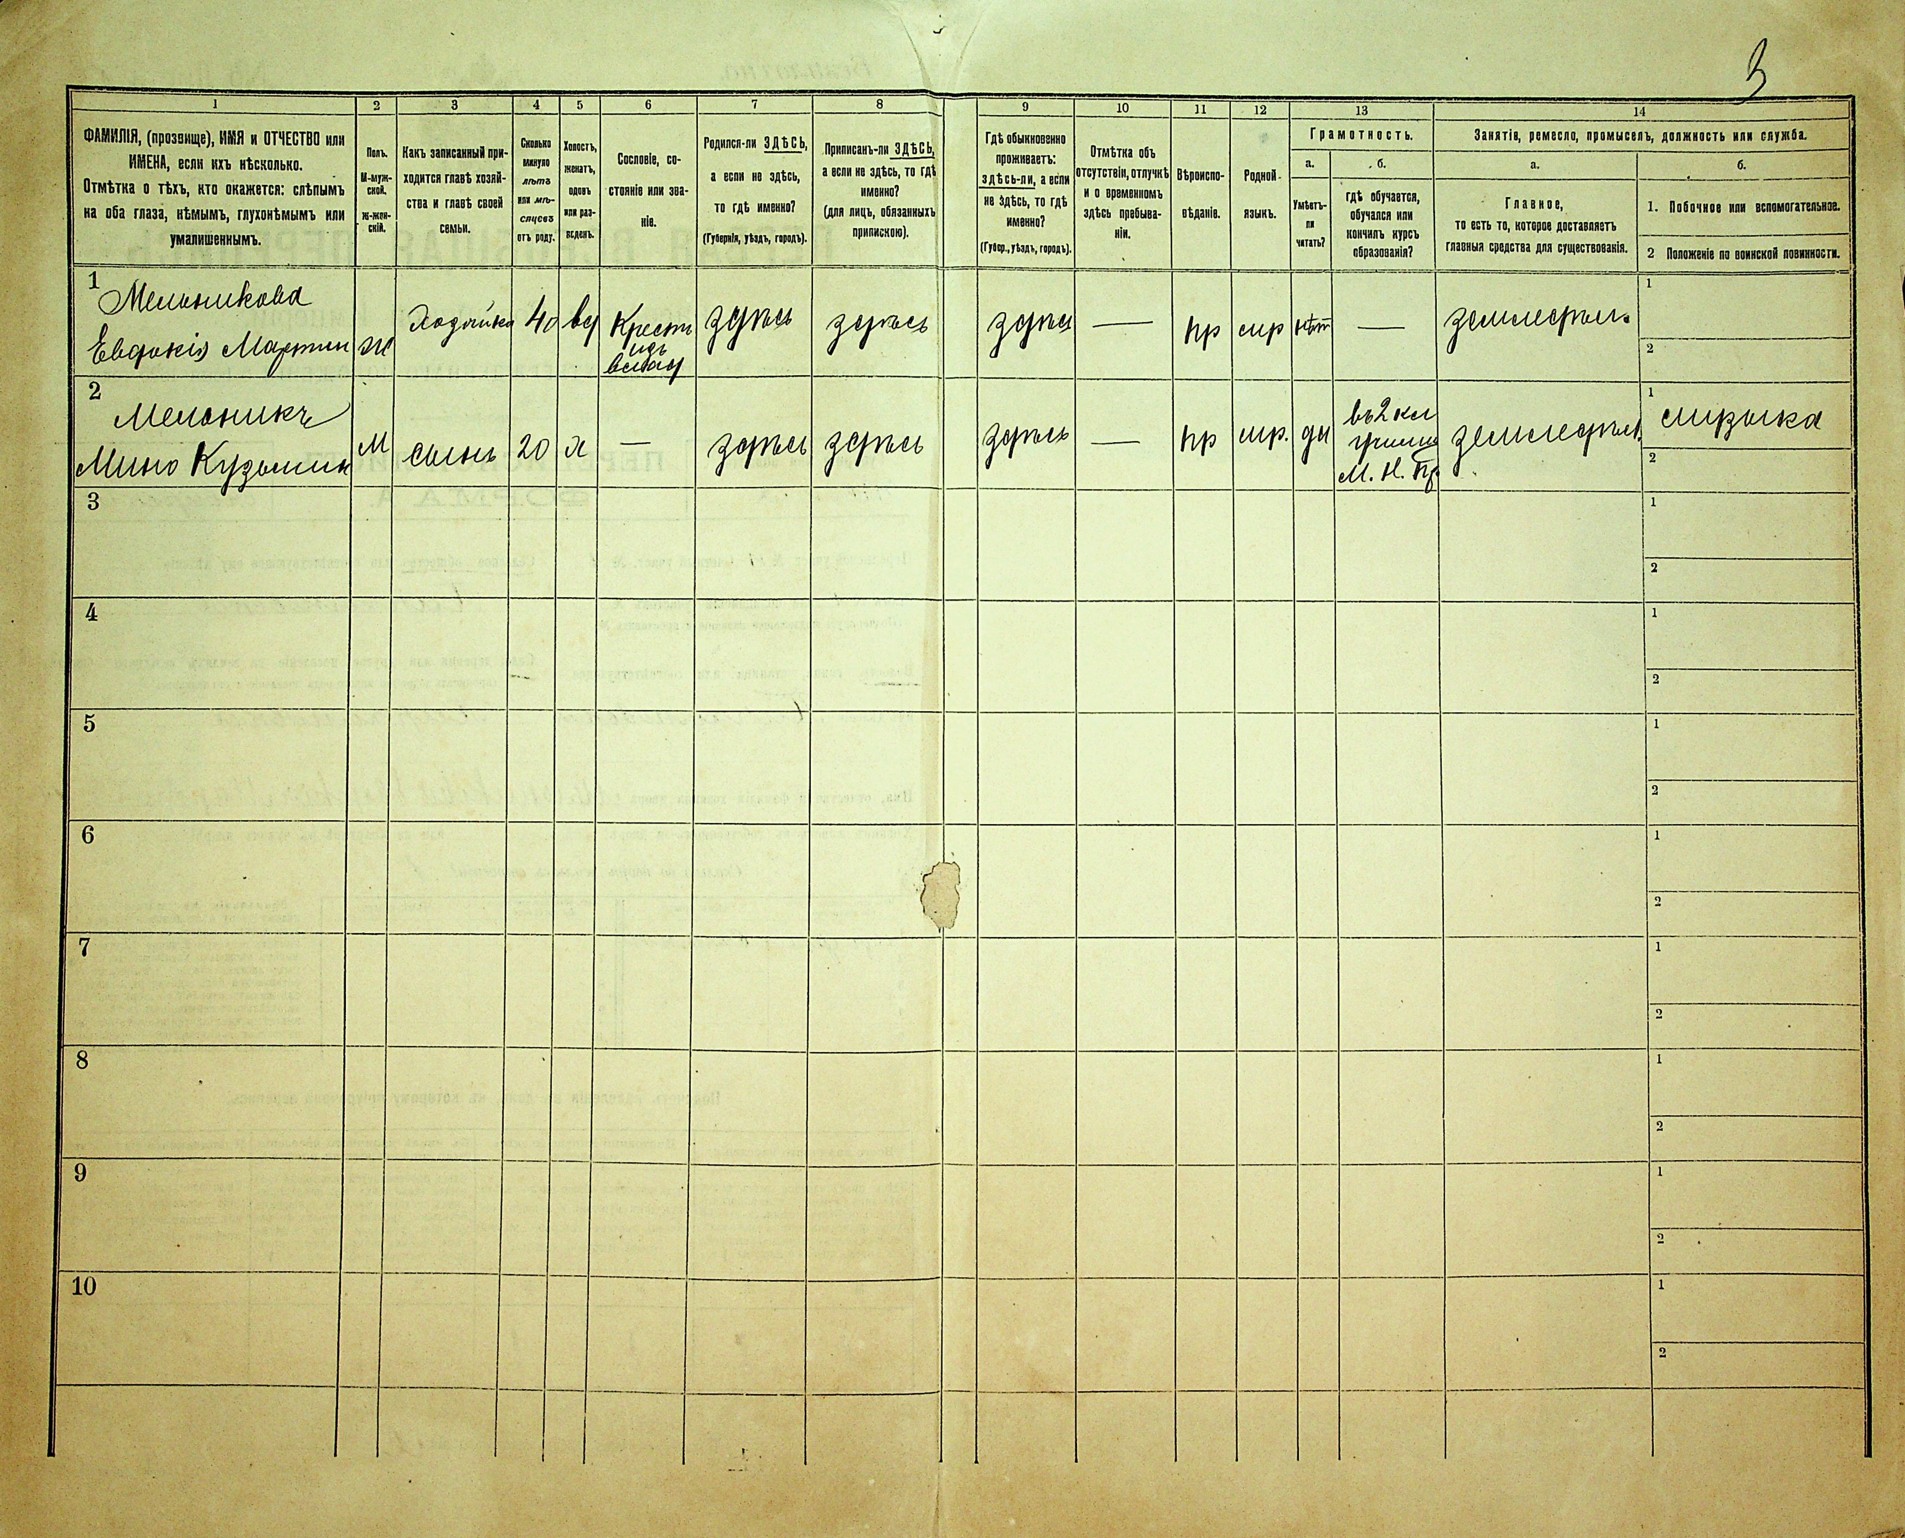 3
1 2 3 4 5 6 7 8 9 10 11 12 13 14
ФАМИЛІЯ, (прозвище), ИМЯ и ОТЧЕСТВО или
ИМЕНА, если ихъ нѣсколько.
Отмѣтка о тѣхъ, кто окажется: слѣпымъ
на оба глаза, нѣмымъ, глухонѣмымъ или
умалишеннымъ.
Полъ.
М-муж-
ской.
ж-жен-
скій.
Какъ записанный при-
ходится главѣ хозяй-
ства и главѣ своей
семьи.
Сколько
минуло
лѣтъ
или мѣ-
сяцевъ
отъ роду.
Холостъ,
женатъ,
вдовъ
или раз-
веденъ.
Сословіе, со-
стояніе или зва-
ніе.
Родился-ли ЗДѢСЬ,
а если не здѣсь,
то гдѣ именно?
(Губернія, уѣздъ, городъ).
Приписанъ-ли ЗДѢСЬ,
а если не здѣсь, то гдѣ
именно?
(для лицъ, обязанныхъ
припискою).
Гдѣ обыкновенно
проживаетъ:
здѣсь-ли, а если
не здѣсь, то гдѣ
именно?
(Губер., уѣздъ, городъ).
Отмѣтка объ
отсутствіи, отлучкѣ
и о временномъ
здѣсь пребыва-
ніи.
Вѣроиспо-
вѣданіе.
Родной
языкъ.
Грамотность.
а.
Умѣетъ-
ли
читать?
б.
гдѣ обучается,
обучался или
кончилъ курсъ
образованія?
Занятіе, ремесло, промыселъ, должность или служба.
а.
Главное,
то есть то, которое доставляетъ
главныя средства для существованія.
б.
1. Побочное или вспомогательное.
2 Положеніе по воинской повинности.
1
Мельникова
Евдокія Мартин
ж
Хозяйка
40
вд
Крест
изъ
здѣсь
здѣсь
здѣсь
—
пр
мр
нѣт
—
земледѣл.
1
2
2
Мельникъ
Мина Кузьмин
М
сынъ
20
х
—
здѣсь
здѣсь
здѣсь
—
пр
мр.
да
въ 2 кл
училищ
М. Н. Пр.
земледѣл.
1 музыка
2
3
1
2
4
1
2
5
1
2
6
1
2
7
1
2
8
1
2
9
1
2
10
1
2